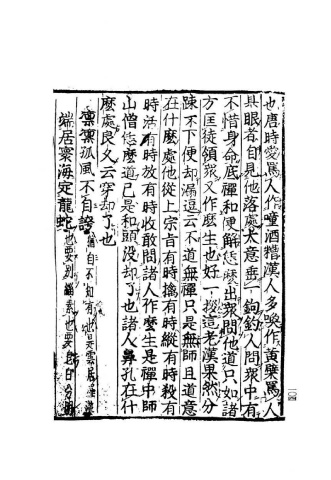 也唐時愛罵人作噇酒糟漢人多喚作黃檗罵人
具眼者自見他落處大意垂一鉤釣人問眾中有
不惜身命底禪和便解恁麼出眾問他道只如諸
方匡徒領眾又作麼生也好一拶這老漢果然分
疎不下便却漏逗云不道無禪只是無師且道意
在什麼處他從上宗旨有時擒有時縱有時殺有
時活有時放有時收敢問諸人作麼生是禪中師
山僧恁麼道已是和頭沒却了也諸人鼻孔在什
麼處良久云穿却了也
凜凜孤風不自誇猶自不知有也是雲居羅漢
端居寰海定龍蛇也要別緇素也要皂白分明